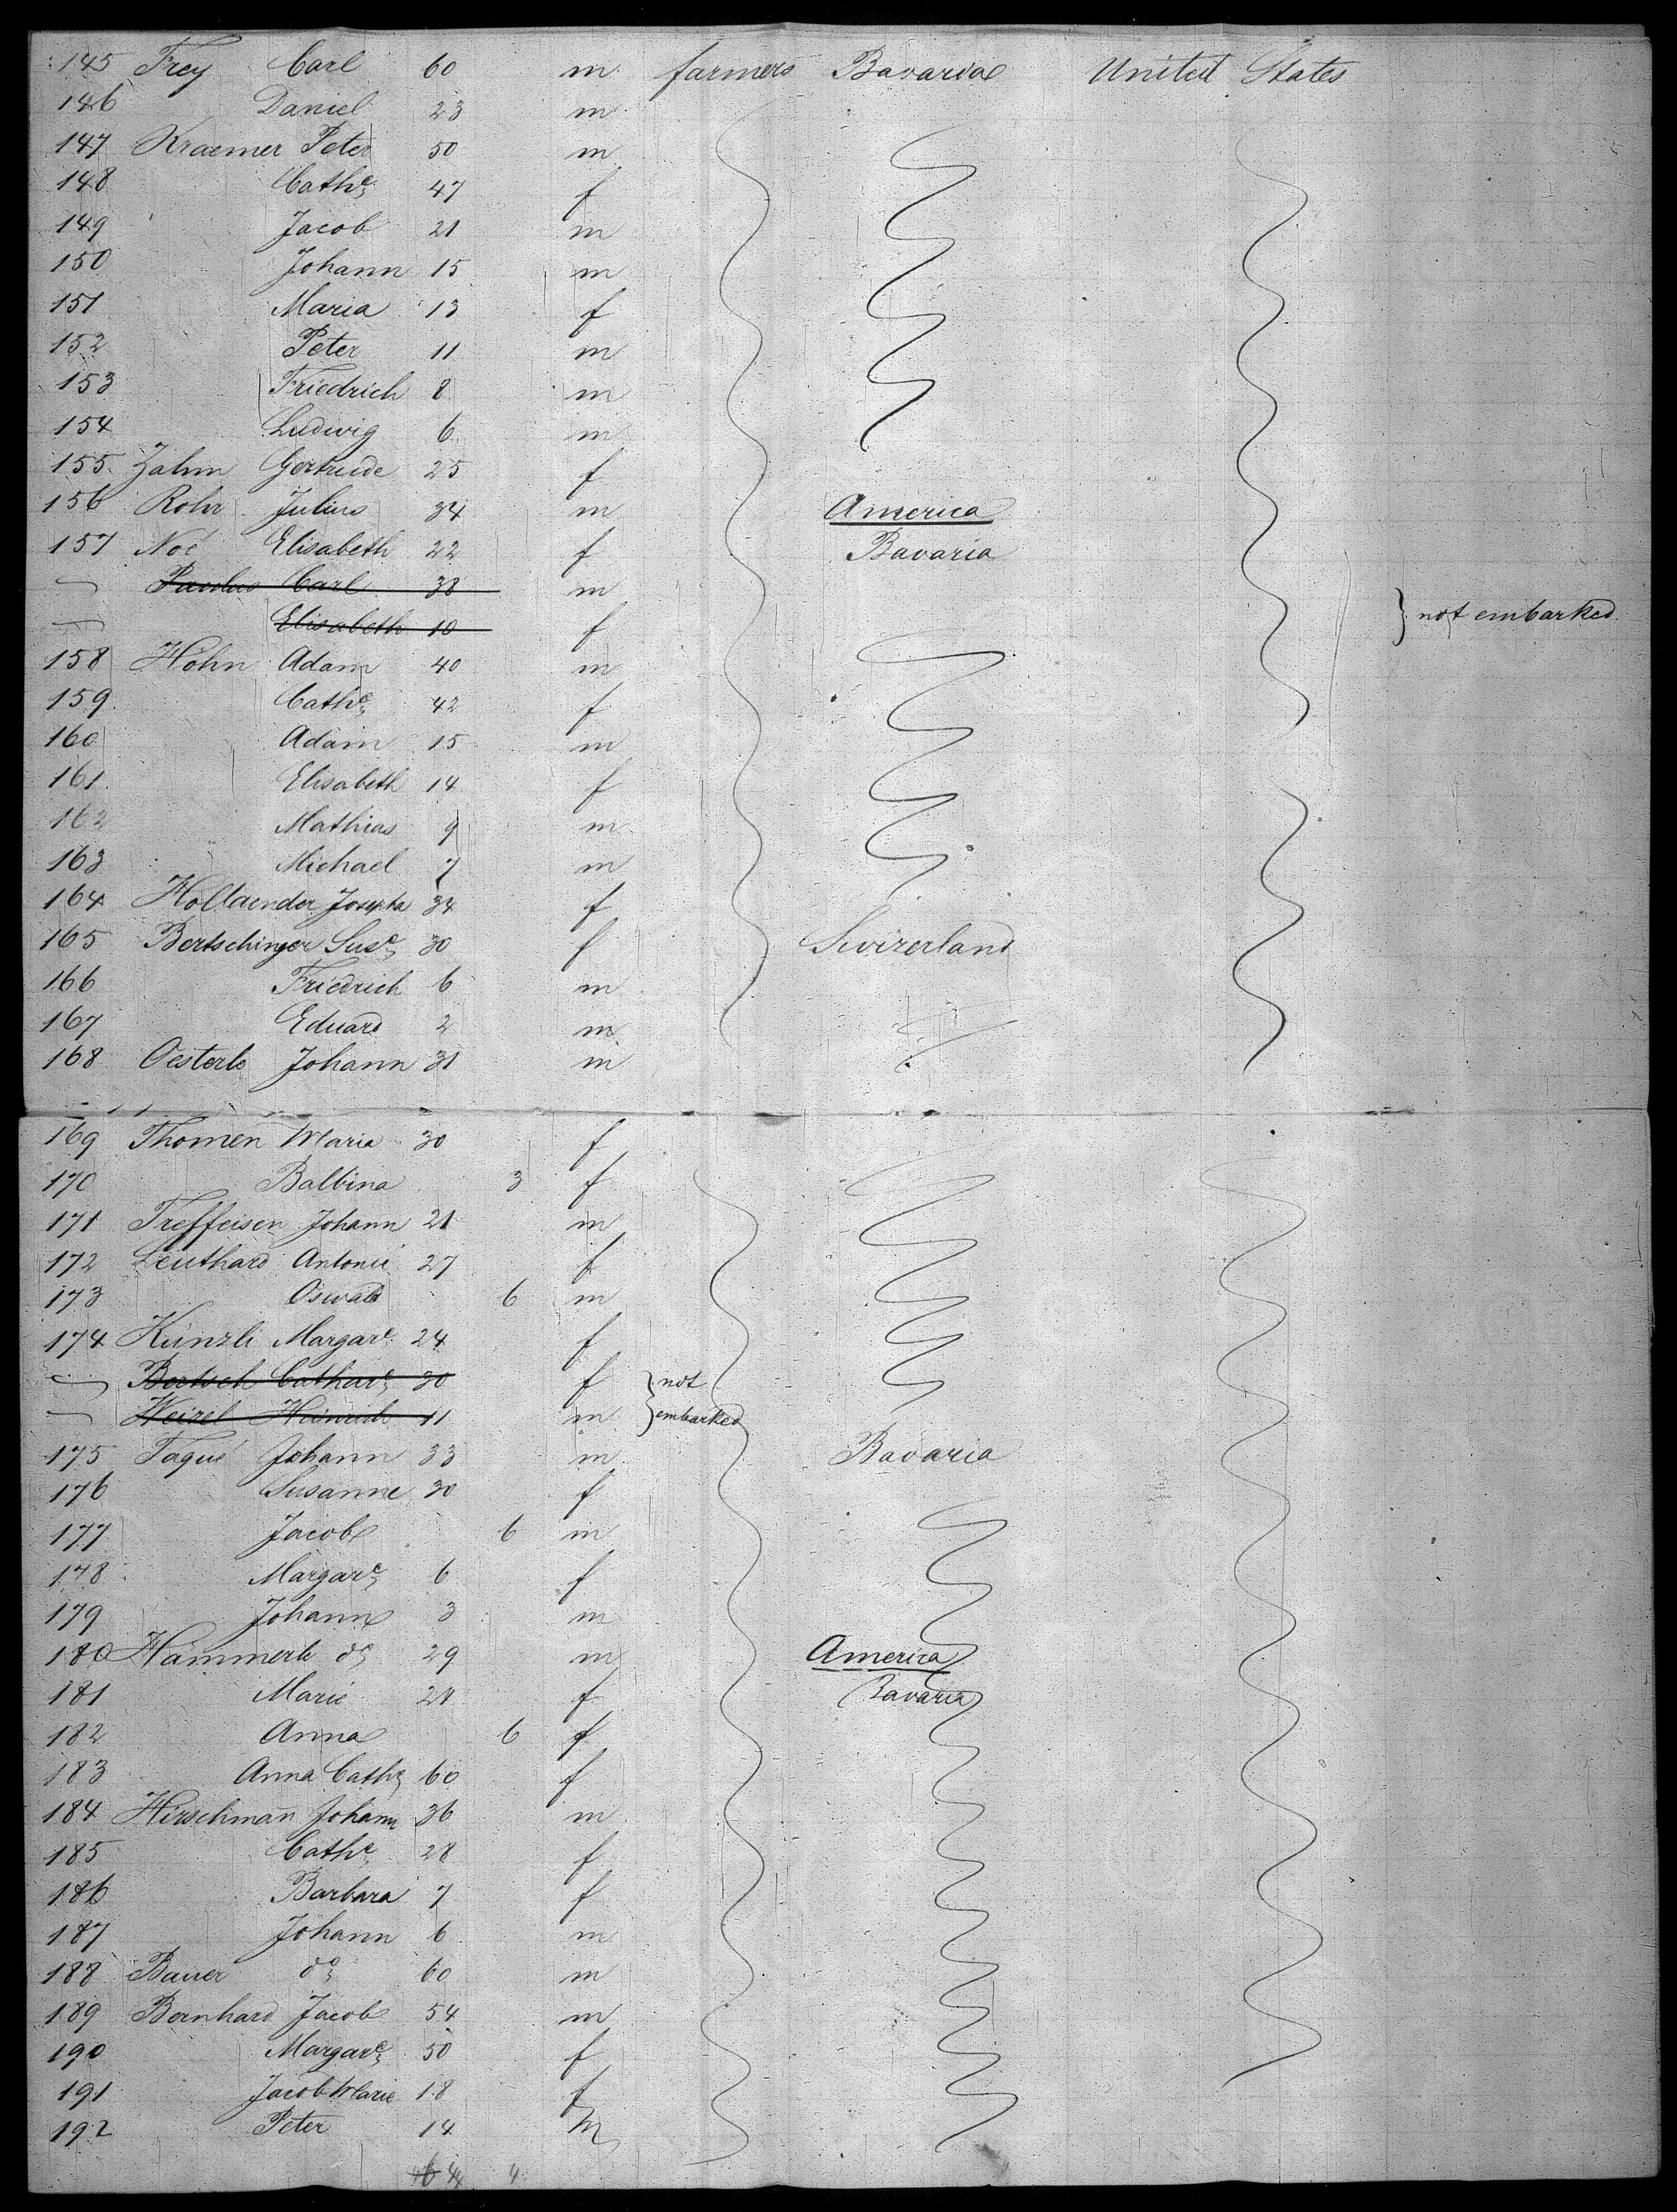 145 Frey Carl 60 m farmers Bavaria United States
146 Daniel 23 m
147 Kraemer Peter 50 m
148 Cathe 47 f
149 Jacob 21 m
150 Johann 15 m
151 Maria 13 f
152 Peter 11 m
153 Friedrich 8 m
154 Ludwig 6 m
155 Zahm Gertrude 25 f
156 Rohr Julius 34 m America
157 Noé Elisabeth 22 f Bavaria
Paulus Carl 38 m
Elisabeth 10 f } not embarked
158 Höhn Adam 40 m
159 Cathe 42 f
160 Adam 15 m
161 Elisabeth 14 f
162 Mathias 9 m
163 Michael 7 m
164 Hollaender Josepha 34 f
165 Bertschinger Suse 30 f Swizerland
166 Friedrich 6 m
167 Eduard 2 m
168 Oesterle Johann 31 m
169 Thomen Maria 30 f
170 Balbina 3 f
171 Treffeisen Johann 21 m
172 Leuthard Antonie 27 f
173 Oswald 6 m
174 Künzli Margare 24 f
Bertsch Cathare 30 f } not
Weizel Heinrich 11 m } embarked
175 Taqué Johann 33 m Bavaria
176 Susanne 30 f
177 Jacob 6 m
178 Margare 6 f
179 Johann 3 m
180 Hämmerle do 29 m America
181 Marie 24 f Bavaria
182 Anna 6 f
183 Anna Cath 60 f
184 Hirschman̄ Johann 36 m
185 Cathe 28 f
186 Barbara 7 f
187 Johann 6 m
188 Bauer do 60 m
189 Bernhard Jacob 54 m
190 Margare 50 f
191 Jacob Marie 18 f
192 Peter 14 m
44 4